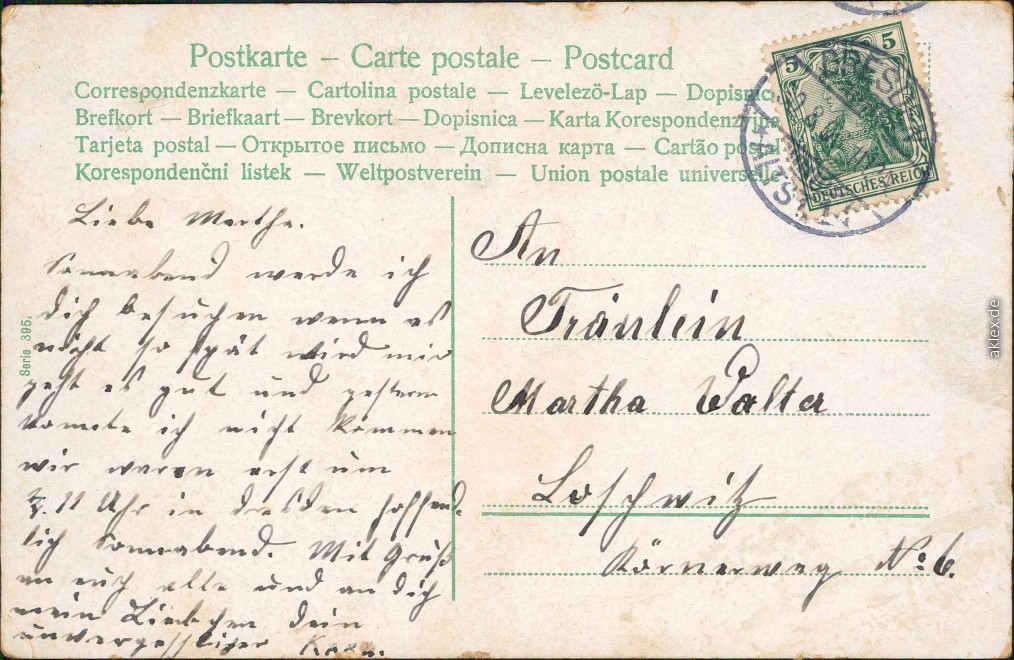 Postkarte – Carte postale – Postcard
Correspondenzkarte – Cartolina postale – Levelezö-Lap – Dopisnic
Brefkort – Briefkaart – Brevkort – Dopisnica – Karta Korespondenzyjna
Tarjeta postal – Открытое письмо – Дописна карта – Cartão postal
Korespondenčni listek – Weltpostverein – Union postale universelle
5 5
DEUTSCHES REICH
DRESDEN
ALTST.
Seria 395.
Liebe Martha.
Sonnabend werde ich
dich besuchen wenn es
nicht so spät wird mir
geht es gut und gestern
konnte ich nicht kommen
wir waren erst um
11 Uhr in dresden hoffend-
lich Sonnabend. Mit Gruß
an euch alle und an dich
mein Liebchen dein
unvergesslicher
An
Fräulein
Martha Walter
Loschwitz
Körnerweg No 6.
aklex.de